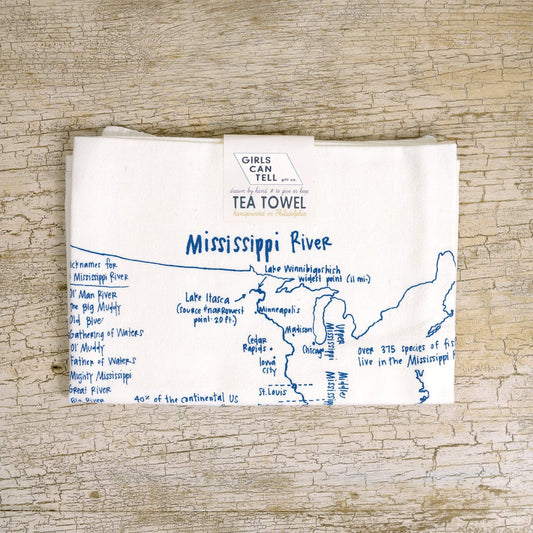 GIRLS
CAN
TELL
gift co.
drawn by hand to give or keep
TEA TOWEL
handprinted in Philadelphia
Mississippi River
icknames for
Mississippi River
Ol' Man River
he Big Muddy
Old Blue
Gathering of Waters
Ol' Muddy
Father of Waters
Mighty Mississippi
Great River
Big River
Lake Winnibigoshich
widest point (11 mi.)
Lake Itasca
(source & narrowest
point: 20 ft.)
Minneapolis
Madison
Chicago
Cedar
Rapids
Iowa
City
St. Louis
Upper
Mississippi
Middle
Mississip
over 375 species of fis
live in the Mississippi
40% of the continental US